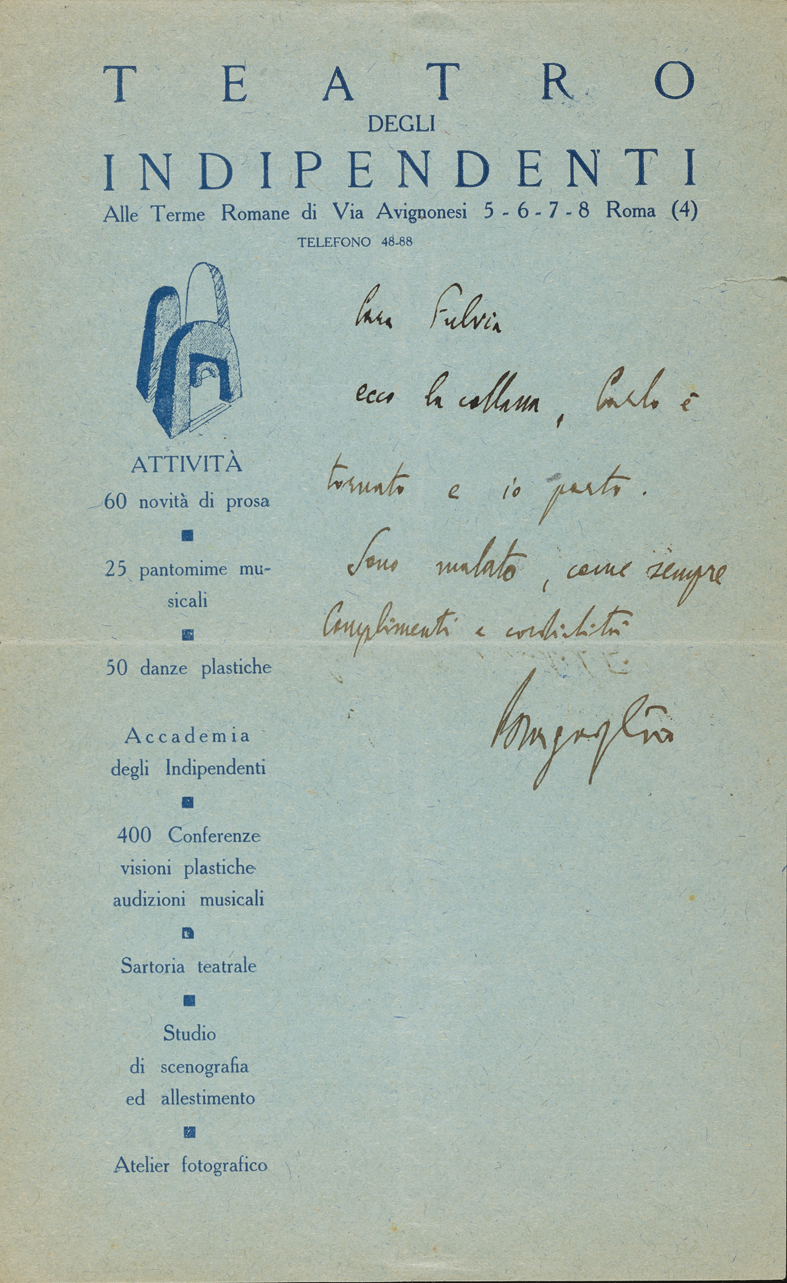 TEATRO
DEGLI
INDIPENDENTI
Alle Terme Romane di Via Avignonesi 5 - 6 - 7 - 8 Roma (4)
TELEFONO 48-88
Cara Fulvia
ecco la collana, Carlo è
tornato e io parto.
Sono malato, come sempre
Complimenti e cordialità
Bragaglia
ATTIVITÀ
60 novità di prosa
25 pantomime mu-
sicali
50 danze plastiche
Accademia
degli Indipendenti
400 Conferenze
visioni plastiche
audizioni musicali
Sartoria teatrale
Studio
di scenografia
ed allestimento
Atelier fotografico